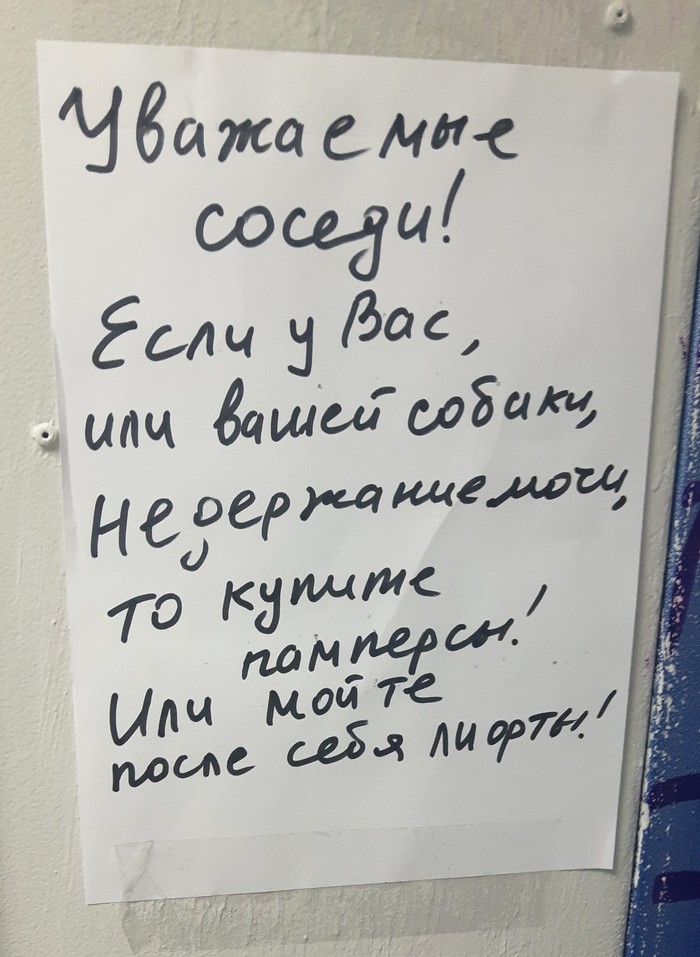 Уважаемые
соседи!
Если у Вас,
или вашей собаки,
Недержание мочи,
то купите
памперсы!
Или мойте
после себя лиорты!